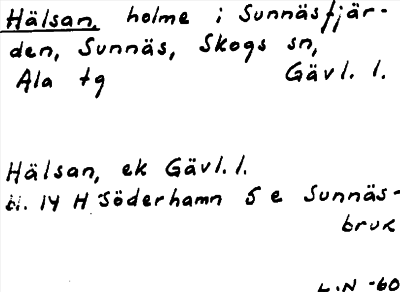 Hälsan, holme i Sunnäsfjär-
den, Sunnäs, Skogs sn,
Ala tg Gävl. l.
Hälsan, ek Gävl. l.
bl. 14 H Söderhamn 5 e Sunnäs-
bruk
L.N -60